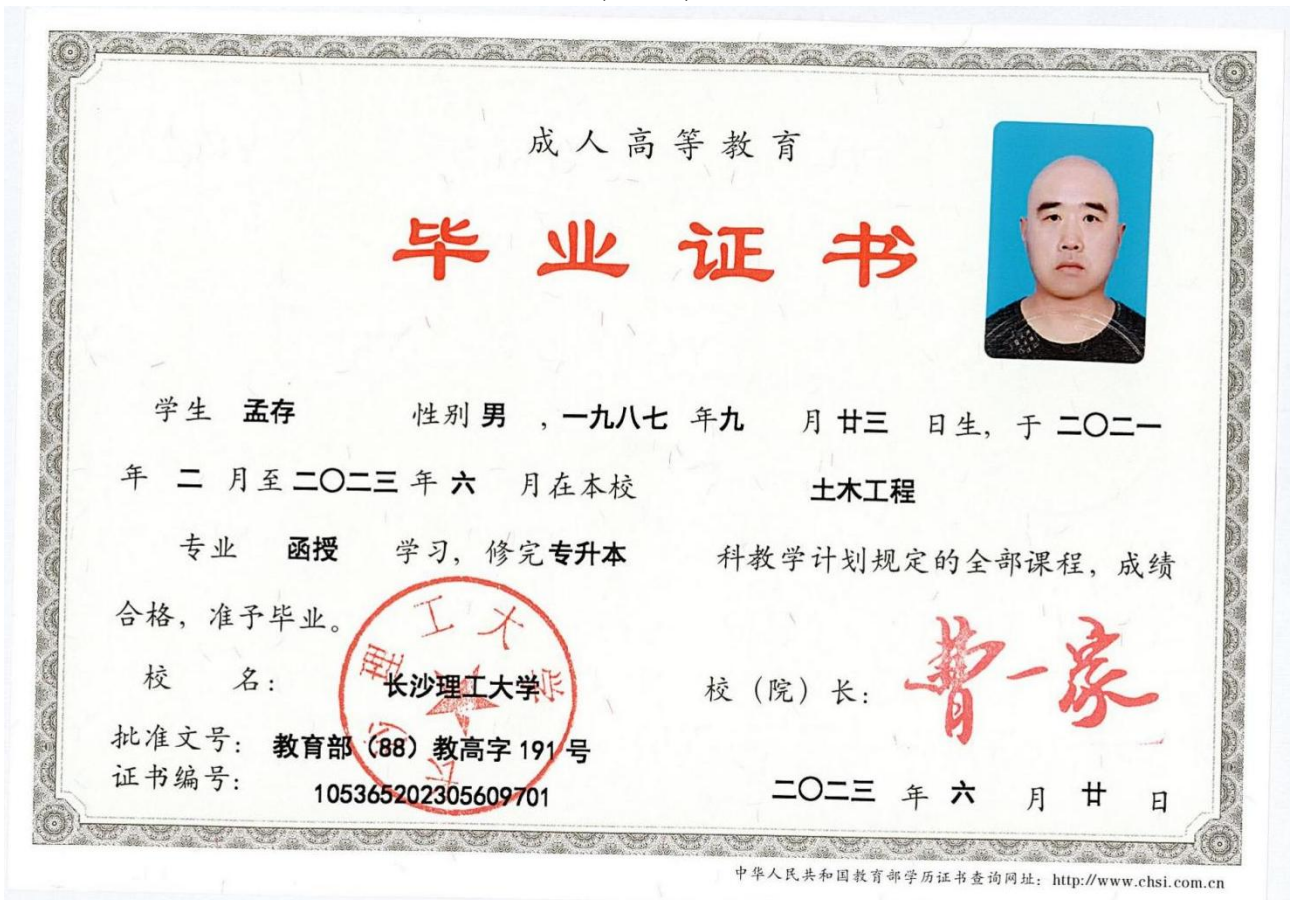 成人高等教育
毕业证书
学生 孟存 性别 男 ，一九八七 年 九 月 廿三 日生，于 二〇二一
年 二 月至 二〇二三 年 六 月在本校 土木工程
专业 函授 学习，修完 专升本 科教学计划规定的全部课程，成绩
合格，准予毕业。
长沙理工大学
校 名： 长沙理工大学 校（院）长： 曹一家
批准文号： 教育部（88）教高字 191 号
证书编号： 105365202305609701 二〇二三 年 六 月 廿 日
中华人民共和国教育部学历证书查询网址：http://www.chsi.com.cn